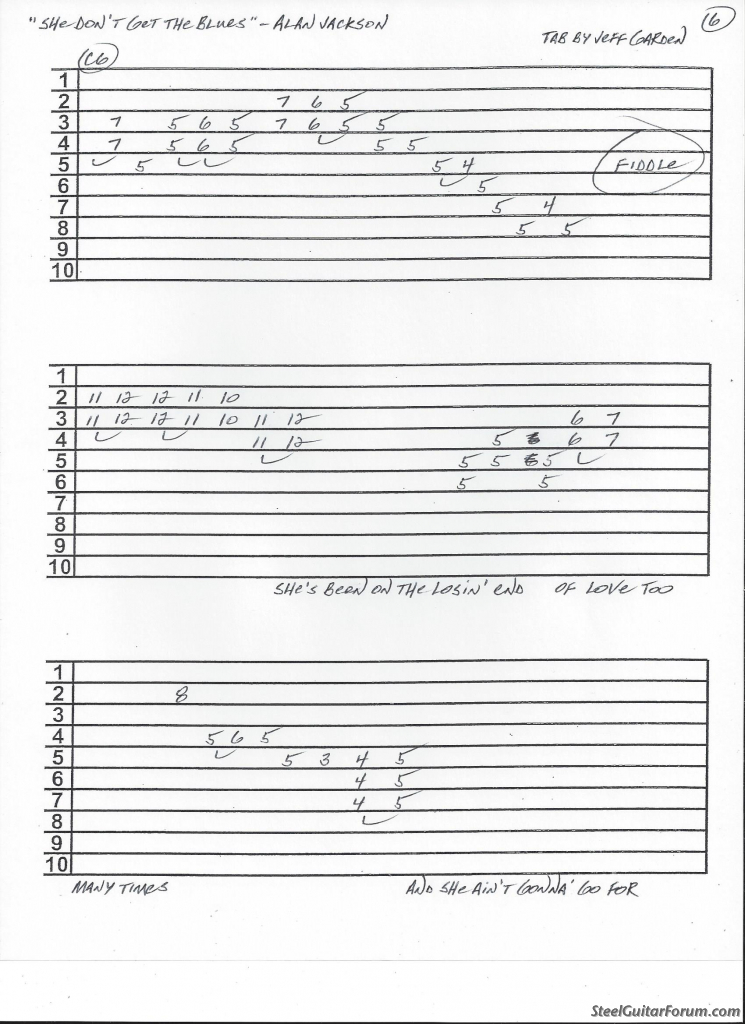 "SHE DON'T GET THE BLUES" - ALAN JACKSON
16
TAB BY JEFF GARDEN
C6
1
2 7 6 5
3 7 5 6 5 7 6 5 5
4 7 5 6 5 5 5
5 5 5 4 FIDDLE
6 5
7 5 4
8 5 5
9
10
1
2 11 12 12 11 10
3 11 12 12 11 10 11 12 6 7
4 11 12 5 6 7
5 5 5 5
6 5 5
7
8
9
10
SHE'S BEEN ON THE LOSIN' END OF LOVE TOO
1
2 8
3
4 5 6 5
5 5 3 4 5
6 4 5
7 4 5
8
9
10
MANY TIMES AND SHE AIN'T GONNA' GO FOR
SteelGuitarForum.com